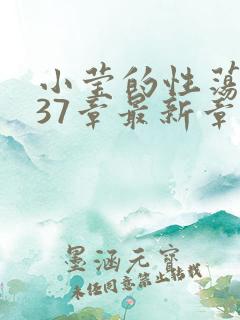 小莹的性荡
37章最新章
墨涵元宝
未经同意禁止转载